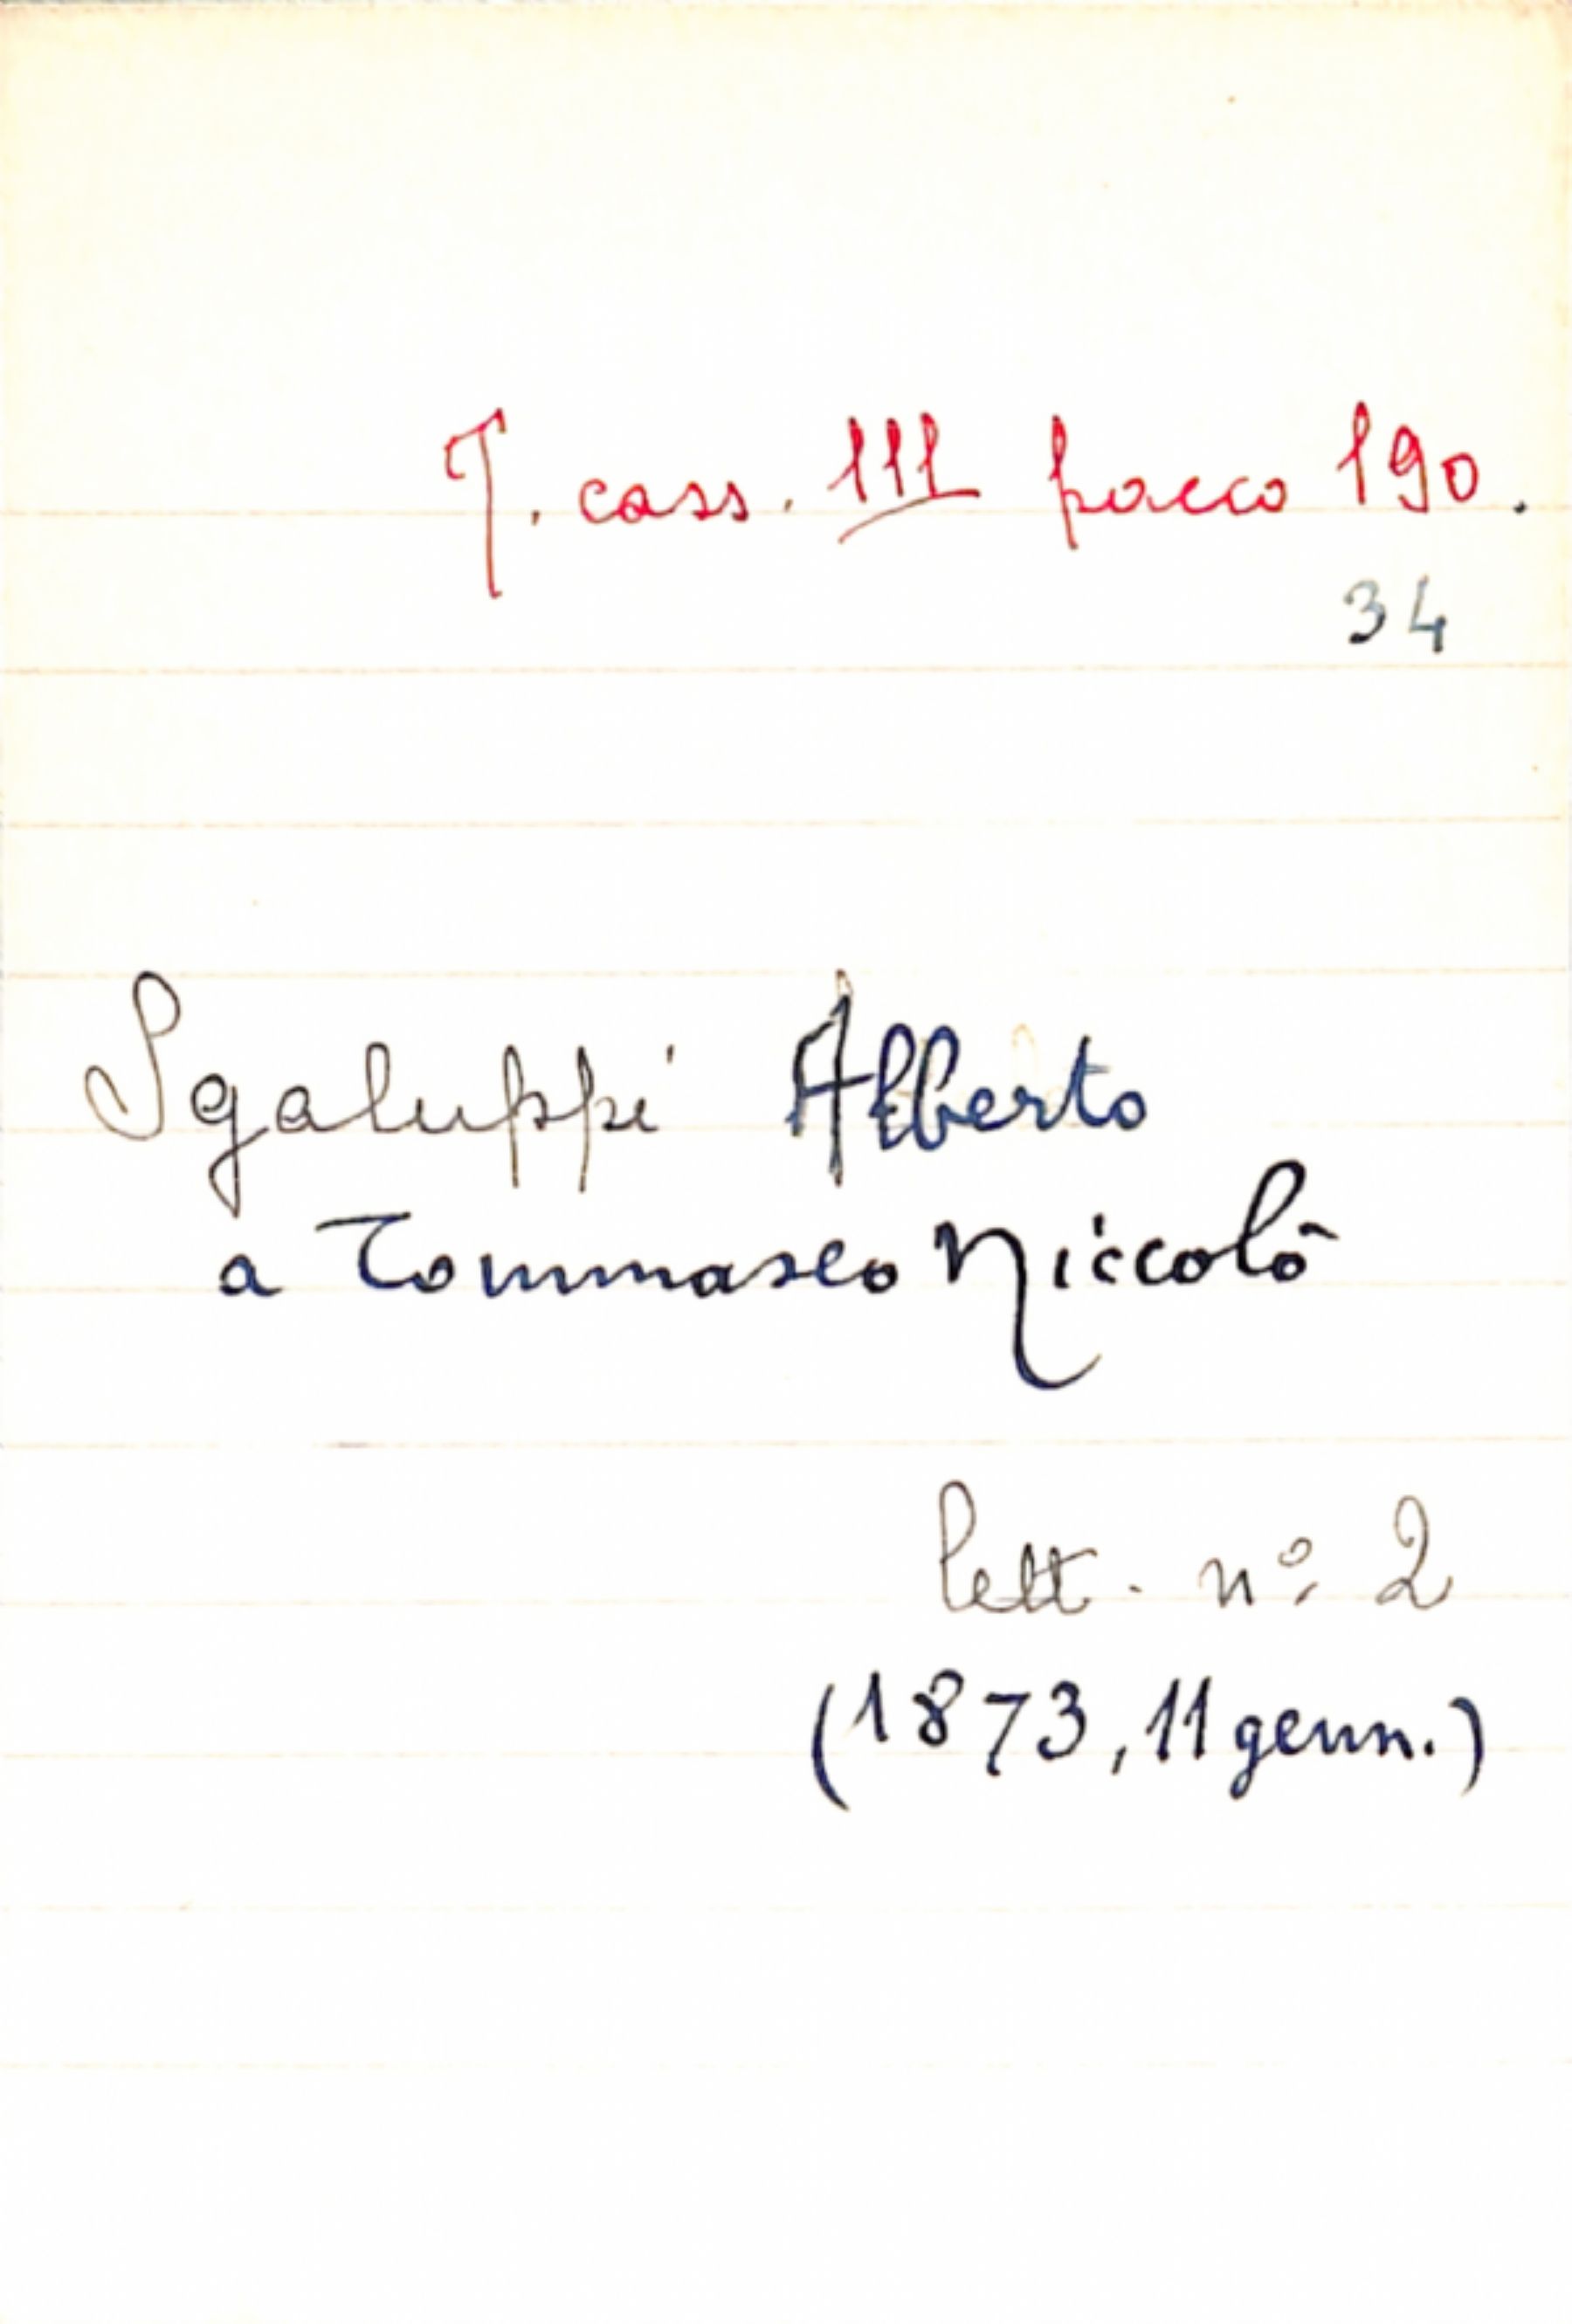 T. cass. 111 pacco 190.
34
Sgaluppi Alberto
a Tommaseo Niccolò
lett. nº 2
(1873, 11 genn.)